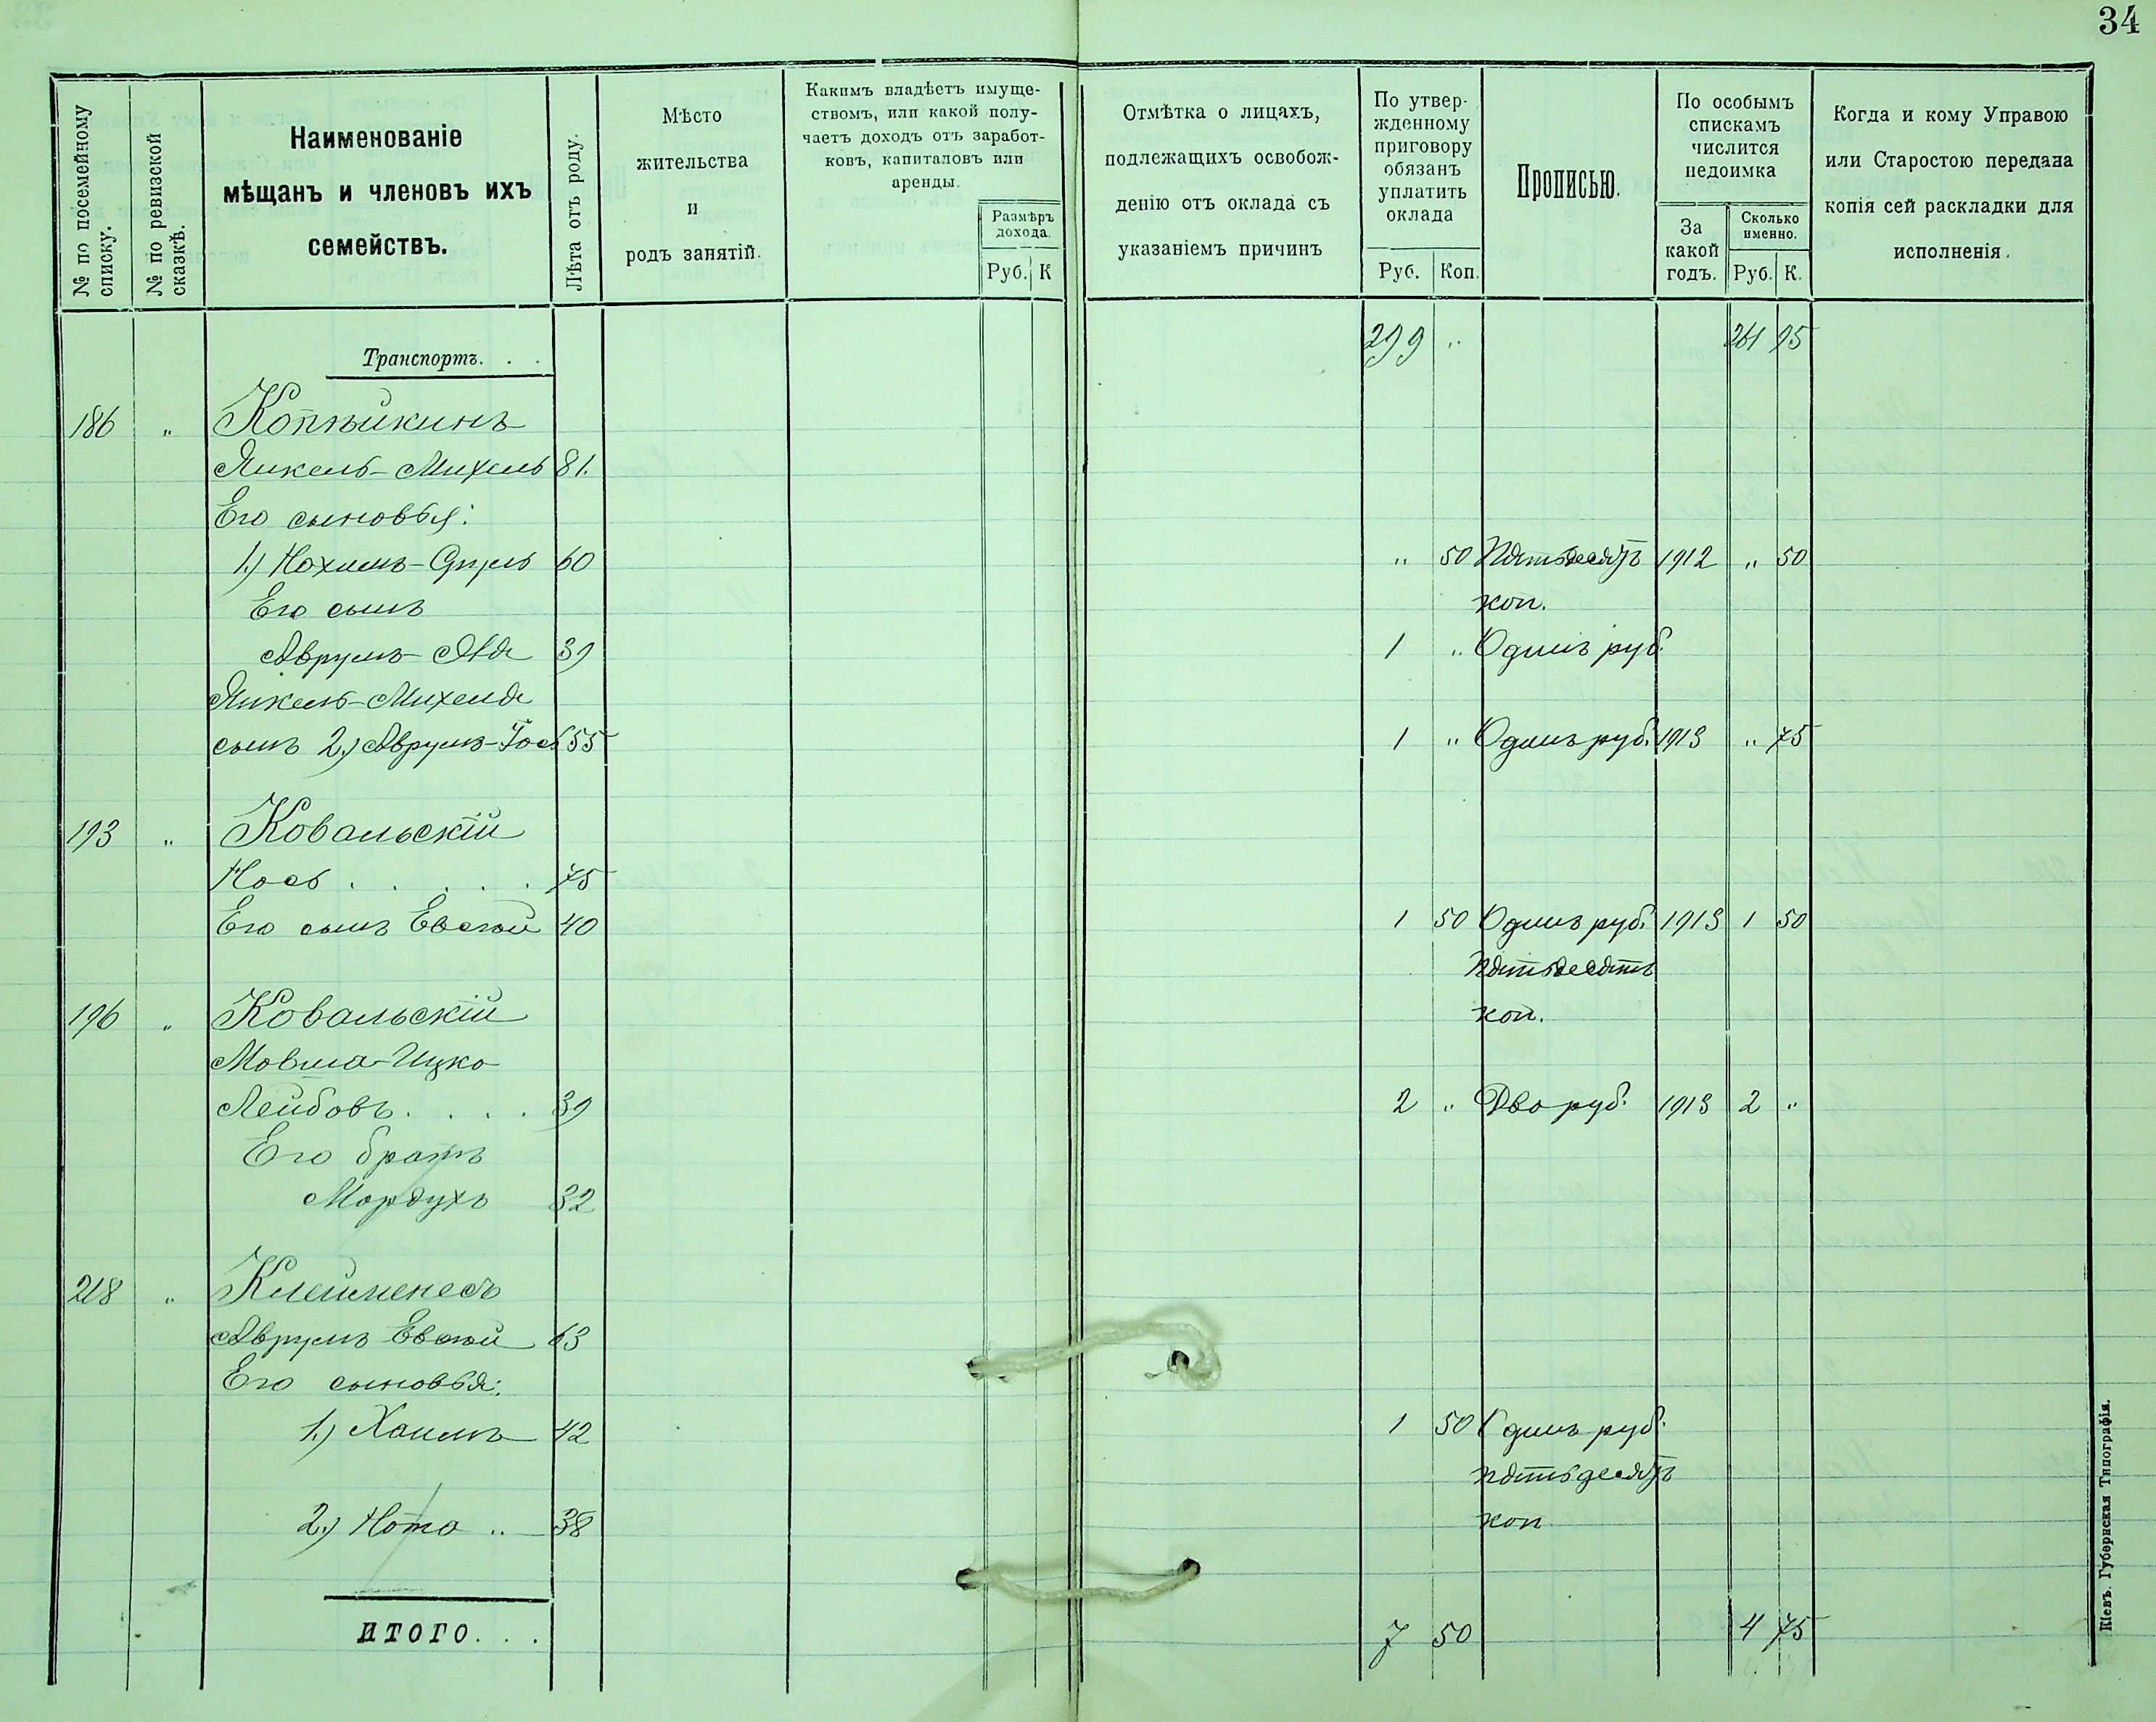 34
№ по посемейному списку.
№ по ревизской сказкѣ.
Наименованіе
мѣщанъ и членовъ ихъ
семействъ.
Лѣта отъ роду.
Мѣсто
жительства
и
родъ занятій.
Какимъ владѣетъ имуще-
ствомъ, или какой полу-
чаетъ доходъ отъ заработ-
ковъ, капиталовъ или
аренды.
Размѣръ
дохода.
Руб. К
Отмѣтка о лицахъ,
подлежащихъ освобож-
денію отъ оклада съ
указаніемъ причинъ
По утвер-
жденному
приговору
обязанъ
уплатить
оклада
Руб. Коп.
Прописью.
По особымъ
спискамъ
числится
недоимка
За
какой
годъ.
Сколько
именно.
Руб. К.
Когда и кому Управою
или Старостою передана
копія сей раскладки для
исполненія.
Транспортъ. . . 299 " 261 95
186 " Копѣйкинъ
Янкель-Михель 81.
Его сыновья:
1.) Нохимъ-Сруль 60 " 50 Пятьдесятъ 1912 " 50
Его сынъ коп.
Аврумъ- 39 1 " Одинъ руб.
Янкель-Михеля
сынъ 2.) Аврумъ-Іось 55 1 " Одинъ руб. 1913 " 75
193 " Ковальскій
Нось . . . . . 75
Его сынъ Евсей 40 1 50 Одинъ руб. 1913 1 50
пятьдесятъ
196 " Ковальскій коп.
Мовша-Ицко
Лейбовъ . . . . 39 2 " Два руб. 1913 2 "
Его братъ
Мордухъ 32
218 " Клейменесъ
Аврумъ Евсей 63
Его сыновья:
1.) Хаимъ 42 1 50 Одинъ руб.
пятьдесятъ
2.) Нота .. 38 коп
ИТОГО. . . 7 50 4 75
Кіевъ. Губернская Типографія.